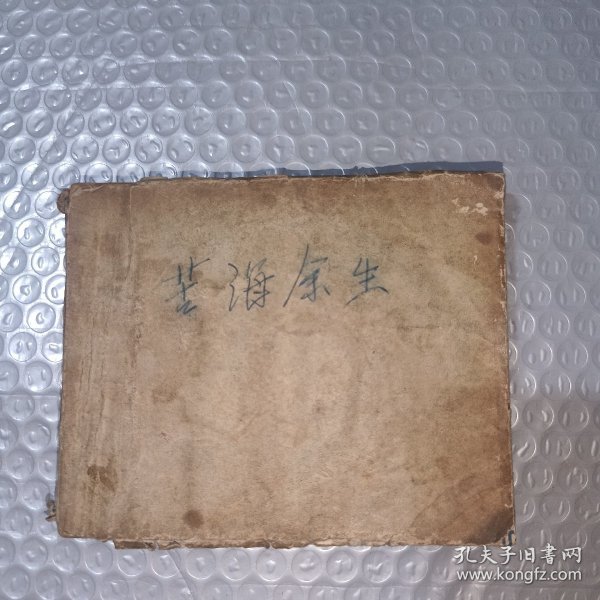 苦海余生
孔夫子旧書网
www.kongfz.com